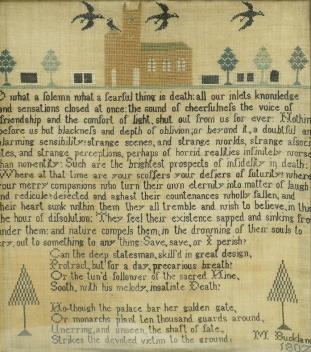 O what a solemn what a fearful thing is death: all our inlets knowledge
and sensations closed at once: the sound of cheerfulness the voice of
friendship and the comfort of light, shut out from us for ever: Nothing
before us but blackness and depth of oblivion; or beyond it, a doubtful and
alarming sensibility: strange scenes, and strange worlds, strange associ
ates, and strange perceptions, perhaps of horrid realities infinitely worse
than nonentity: Such are the brightest prospects of infidelity in death;
Where at that time are your scoffers your defiers of futurity where
your merry companions who turn their own eternity into matter of laugh
and redicule: dejected and aghast their countenances wholly fallen, and
their heart sunk within them they all tremble and wish to believe, in this
the hour of dissolution: They feel their existence sapped and sinking from
under them: and nature compels them, in the drowning of their souls to
cry, out to something or any thing: Save, save, or I perish?
Can the deep statesman, skill'd in great design,
Protract, but for a day, precarious breath?
Or the tun'd follower of the sacred Nine,
Sooth, with his melody, insatiate Death:
No—though the palace bar her golden gate,
Or monarchs plant ten thousand guards around,
Unerring, and unseen, the shaft of fate,
Strikes the devoted victim to the ground.
M Buckland
180